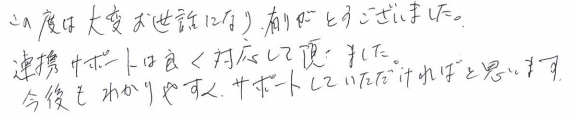 この度は大変お世話になり、有りがとうございました。
連携サポートは良く対応して頂きました
今後もわかりやすく、サポートしていただければと思います。